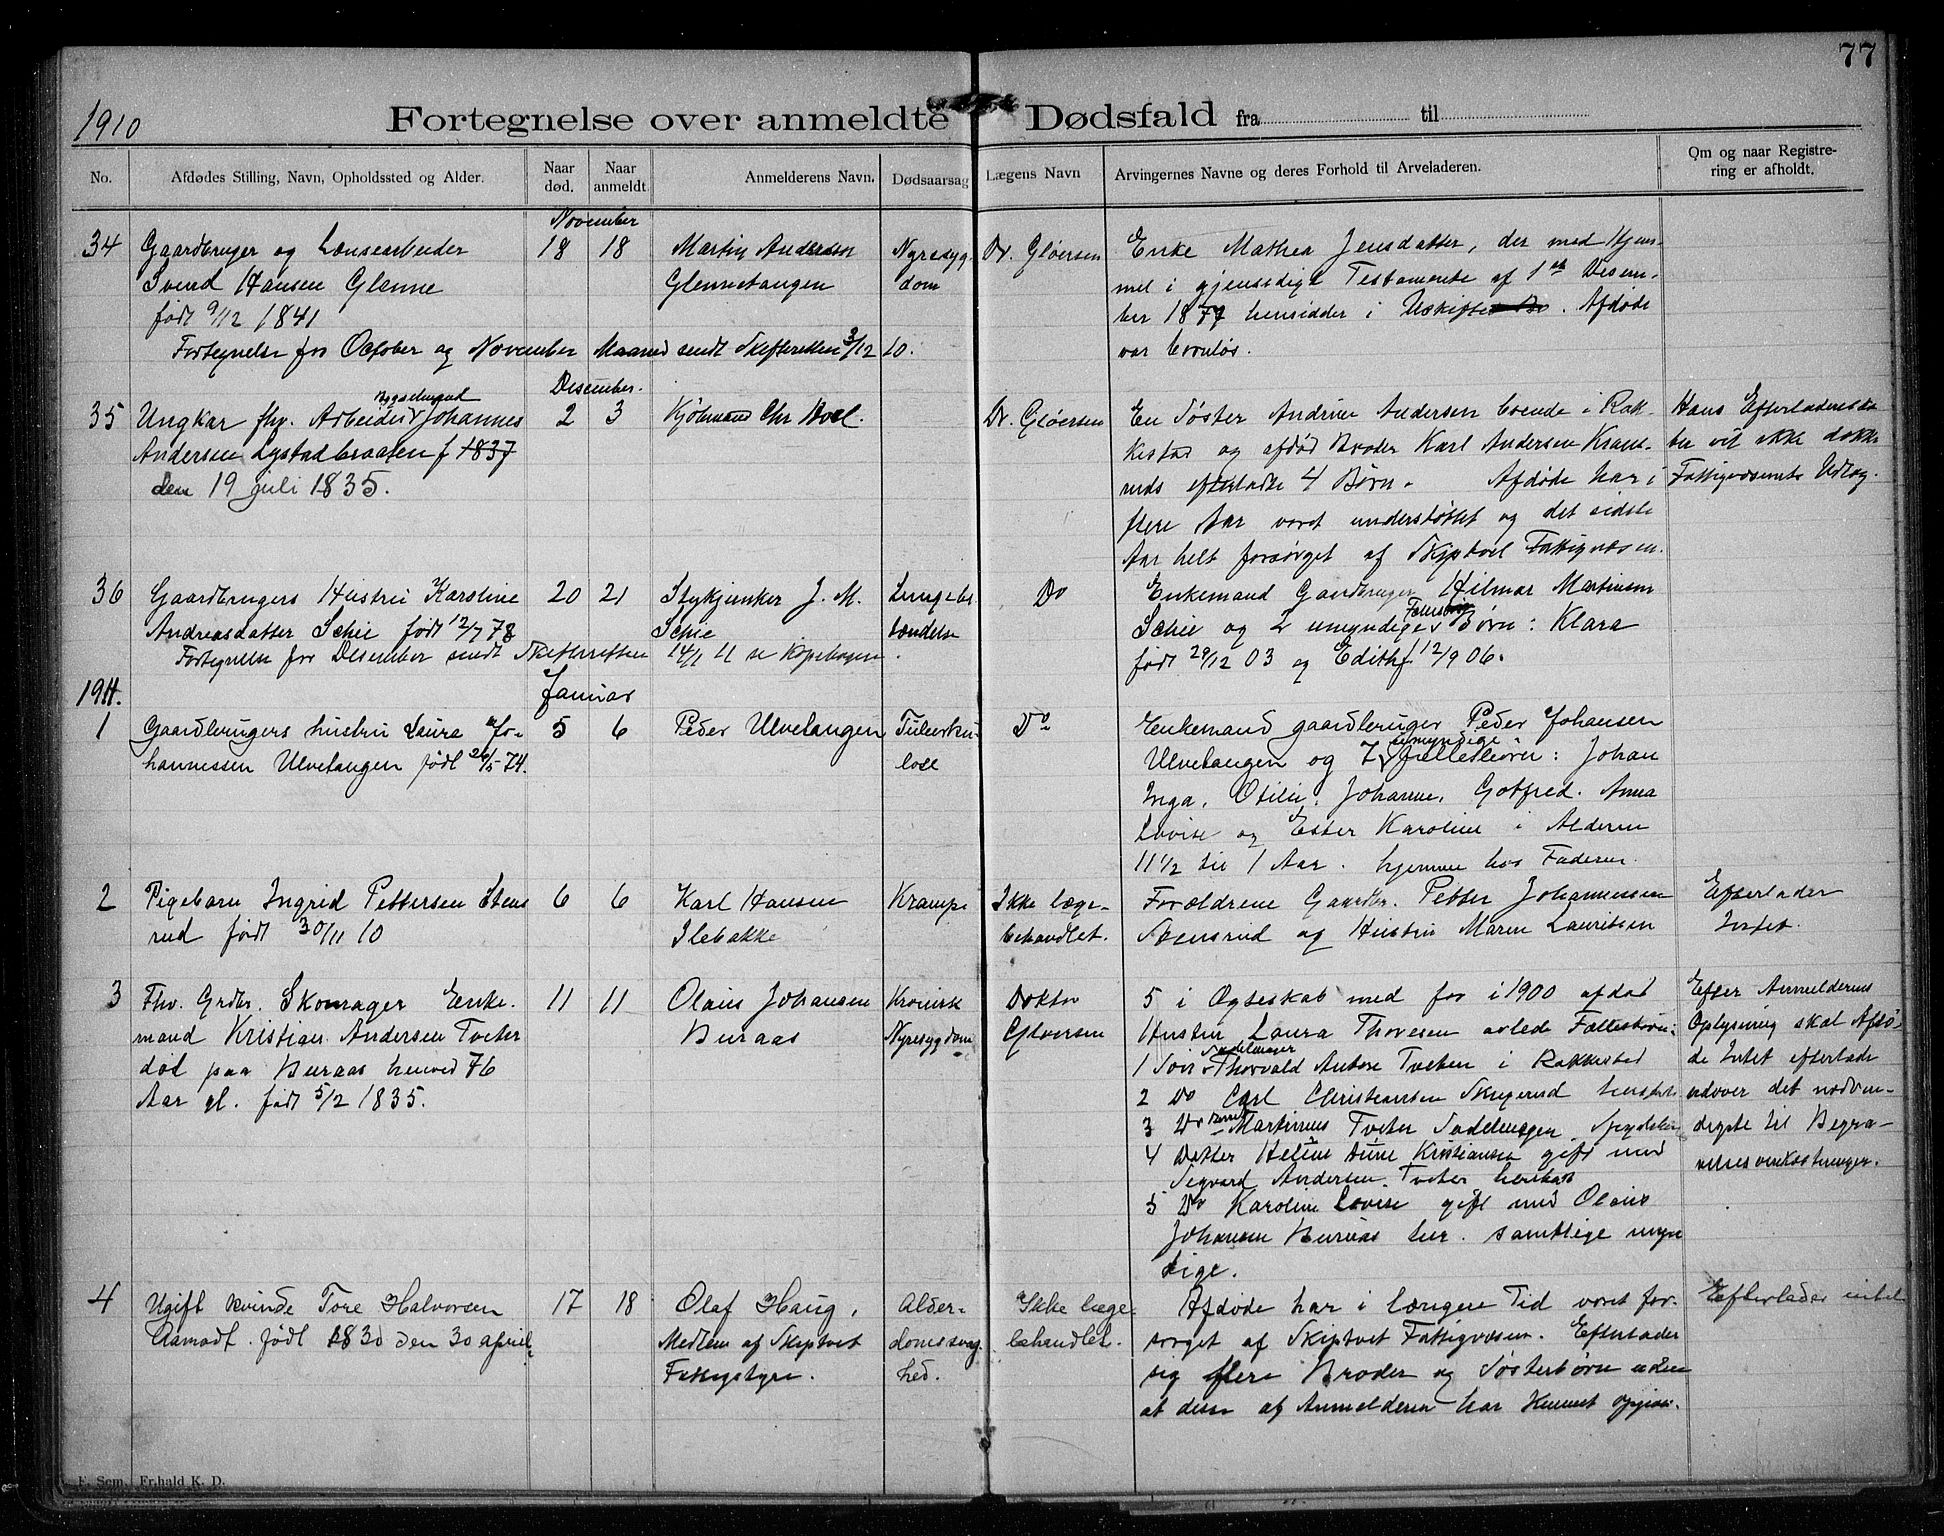 77
1910
Fortegnelse over anmeldte Dødsfald fra til
No.
Afdødes Stilling, Navn, Opholdssted og Alder.
Naar død.
Naar anmeldt.
Anmelderens Navn.
Dødsaarsag
Lægens Navn
Arvingernes Navne og deres Forhold til Arveladeren.
Om og naar Registre-
ring er afholdt.
November
34 Gaardbruger og Lensearbeider
Svend Hansen Glenne
født 9/12 1841
18 18
Martin Andersen
Glennetangen
Nyresyg-
dom
Dr. Gløersen
Enke Mathea Jensdatter, der med Hjem-
mel i gjensidigt Testamente af 1ste Desem-
ber 1877 hensidder i Uskiftet Bo. Afdøde
var barnløs.
Fortegnelse for October og November Maaned sendt Skifteretten 3/12 10.
Desember.
35 Ungkar fhv. Arbeider Bygselmand Johannes
Andersen Lystadbraaten f 1837
den 19 juli 1835.
2 3
Kjøbmand Chr
Dr. Gløersen
En Søster Andrine Andersen boende i Rak-
kestad og afdød Broder Karl Andersen
efterladte 4 Børn. Afdøde har i
flere Aar været understøttet og det sidste
Aar helt forsørget af Skiptvet Fattigvæsen.
Hans Efterladenska-
ber vil ikke dække
Fattigvæsenets Udlæg.
36 Gaardbrugers Hustru Karoline
Andreasdatter Schie født 12/7 78
20 21
Stykjunker J. M.
Schie
Lungebe-
tændelse
Do
Enkemand Gaardbruger Hilmar Martinsen
Schie og 2 umyndige Fælles Børn: Klara
født 29/12 03 og Edith f 12/9 06.
Fortegnelse for Desember sendt Skifteretten 14/1 11 se Kopibogen.
1911.
Januar
1 Gaardbrugers hustru Laura Jo-
hannessen Ulvetangen født 26/5 74.
5 6
Peder Ulvetangen
Tuberku-
lose
Do
Enkemand gaardbruger Peder Johansen
Ulvetangen og 7 umyndige fællesbørn: Johan
Inga, Otilie, Johanne, Gotfred. Anna
Lovise og Ester Karoline i Alderen
11 1/2 til 1 Aar. hjemme hos Faderen.
2 Pigebarn Ingrid Pettersen Stens
rud født 30/11 10
6 6
Karl Hansen
Ilebakke
Krampe
Ikke læge-
behandlet.
Forældrene Gaardbr. Petter Johannessen
Stensrud og Hustru Maren Lauritsen
Efterlader
Intet.
3 Fhv. Grdbr. Skomager Enke-
mand Kristian Andersen Tveter
død paa Buraas henved 76
Aar gl. født 5/2 1835.
11 11
Olaus Johansen
Buraas
Kronisk
Nyresygdom
Doktor
Gløersen
5 i Egteskab med for i 1900 afdød
Hustru Laura Thoresen avlede Fællesbørn:
1 Søn Sadelmager Thorvald Antore Tveten i Rakkestad
2 Do Carl Christiansen Skugerud
3 Do Martinius Tveter Sadelmager, Spydeberg
4 Datter Helene Kristiansen gift med
Sigvard Andersen Tveter
5 Do Karoline Lovise gift med Olaus
Johansen Buraas her. samtlige myn
dige.
Efter Anmelderens
Oplysning skal Afdø-
de Intet efterlade
udover det nødven-
digste til Begra-
velsesomkostninger.
4 Ugift kvinde Tore Halvorsen
Aamodt. født 1830 den 30 april.
17 18
Olaf Haug,
Medlem af Skiptvet
Fattigstyre.
Alder-
domssvag-
hed.
Ikke læge-
behandlet.
Afdøde har i længere Tid været for-
sørget af Skiptvet Fattigvæsen. Efterlader
sig flere Broder og Søsterbørn uden
at disse af Anmelderen har kunnet opgives.
Efterlader intet
F. Sem, Fr.hald K. D.